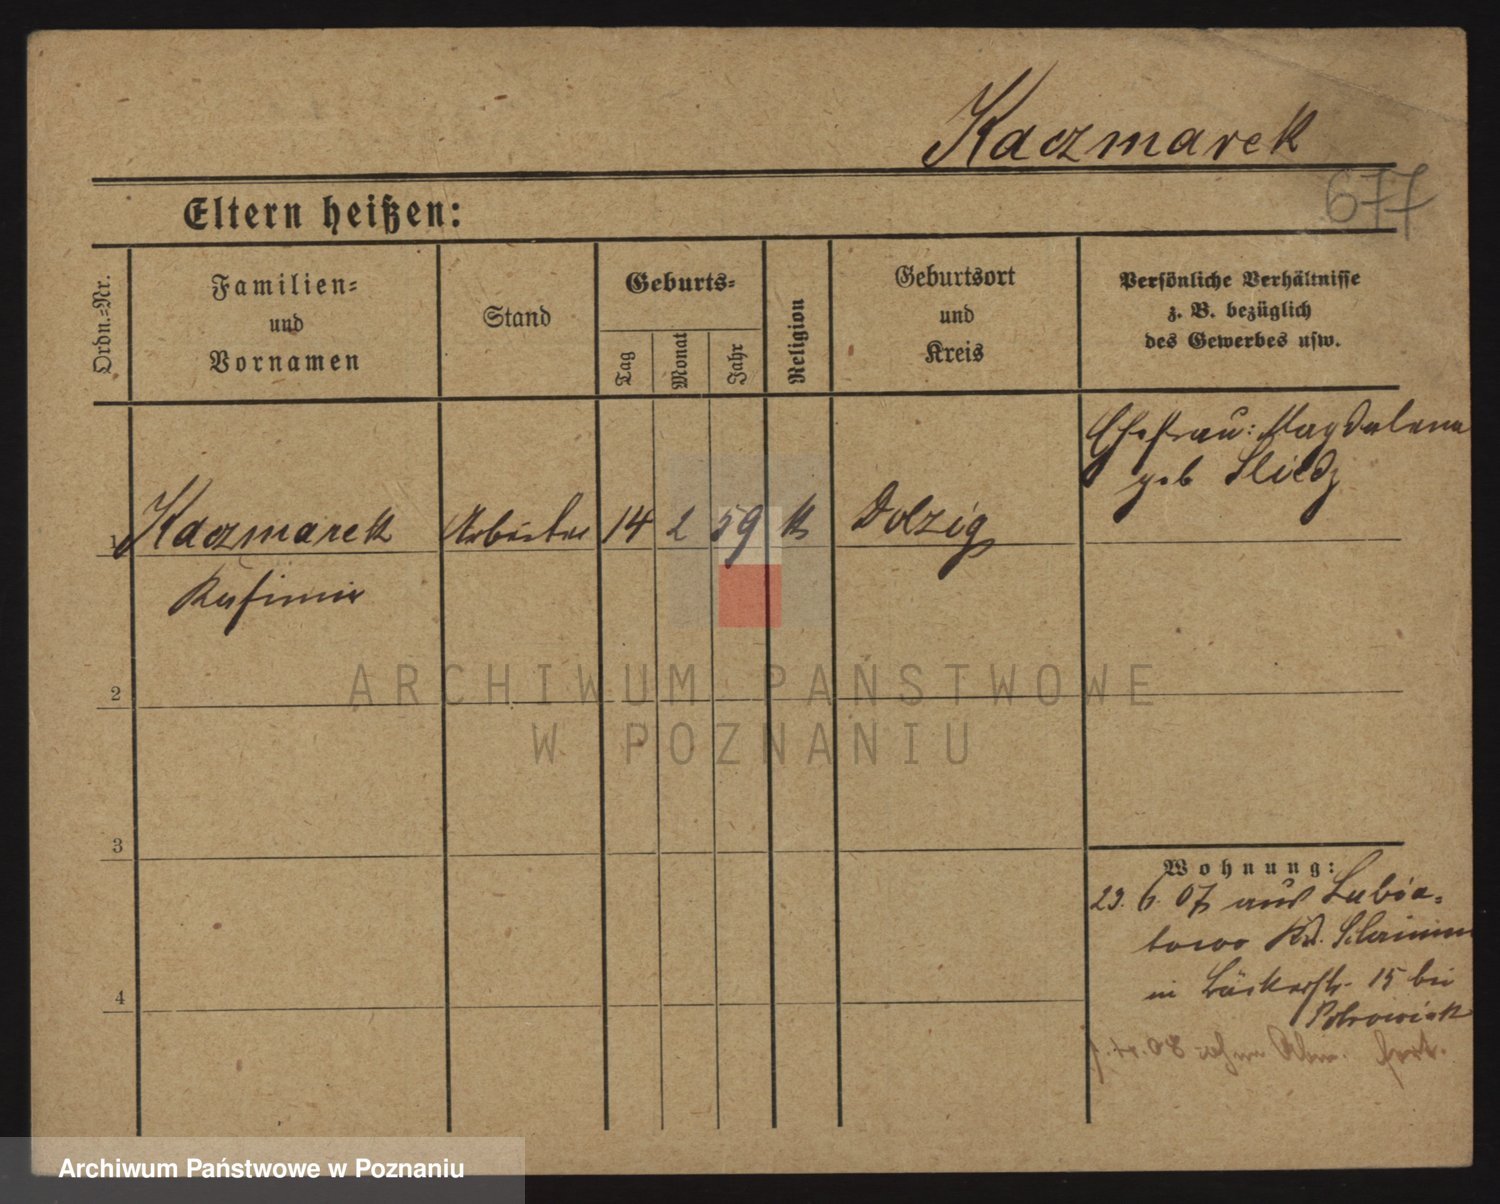 Kaczmarek
677
Eltern heißen:
Ordn.=Nr.
Familien=
und
Vornamen
Stand
Geburts=
Tag
Monat
Jahr
Religion
Geburtsort
und
Kreis
Persönliche Verhältnisse
z. B. bezüglich
des Gewerbes usw.
Ehefrau: Magdalena
geb Sliedz
1 Kaczmarek Arbeiter 14 2 59 K Dolzig
Kasimir
ARCHIWUM PAŃSTWOWE
W POZNANIU
2
3
4
Wohnung:
23. 6. 07 aus Lubia=
towo Kr. Schrimm
in Bäckerstr. 15 bei
08 ohne Abm. fort.
Archiwum Państwowe w Poznaniu